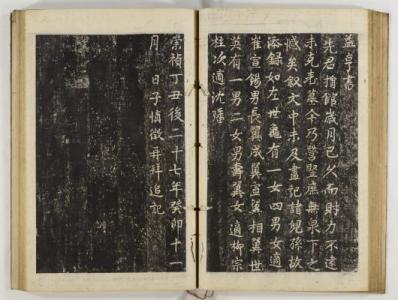 先君捐館歲月已久而財力不逮
未克表墓今乃營竪庶無泉下之
憾矣叙文中未及盡記諸孫故
添錄如左世龜有一女四男女適
崔宣錫男長翼成翼宣翼相翼世
英有一男二女男壽翼女適柳宗
柱次適沈
崇禎丁丑後二十七年癸卯十一
月 日子慎徵再拜追記